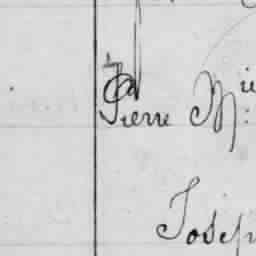 Pierre M:
Josep